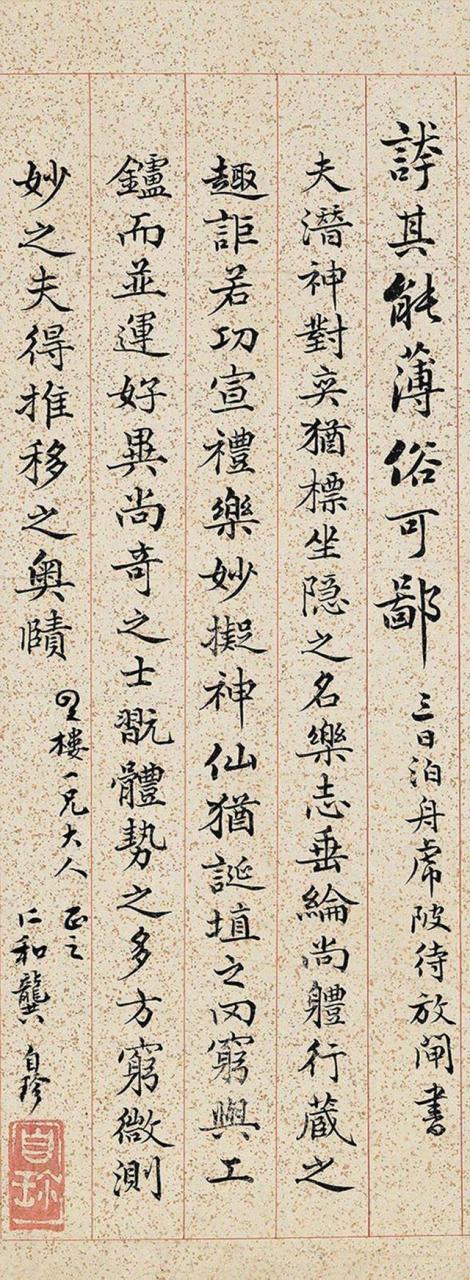 誇其能薄俗可鄙 三日泊舟虎陂待放閘書
夫潛神對奕猶標坐隐之名樂志垂綸尚軆行藏之
趣詎若功宣禮樂妙擬神仙猶誕埴之罔窮與工
鑪而並運好異尚奇之士翫體勢之多方窮微測
妙之夫得推移之奧賾
樓一兄大人 正之
仁和龔自珍
自珍